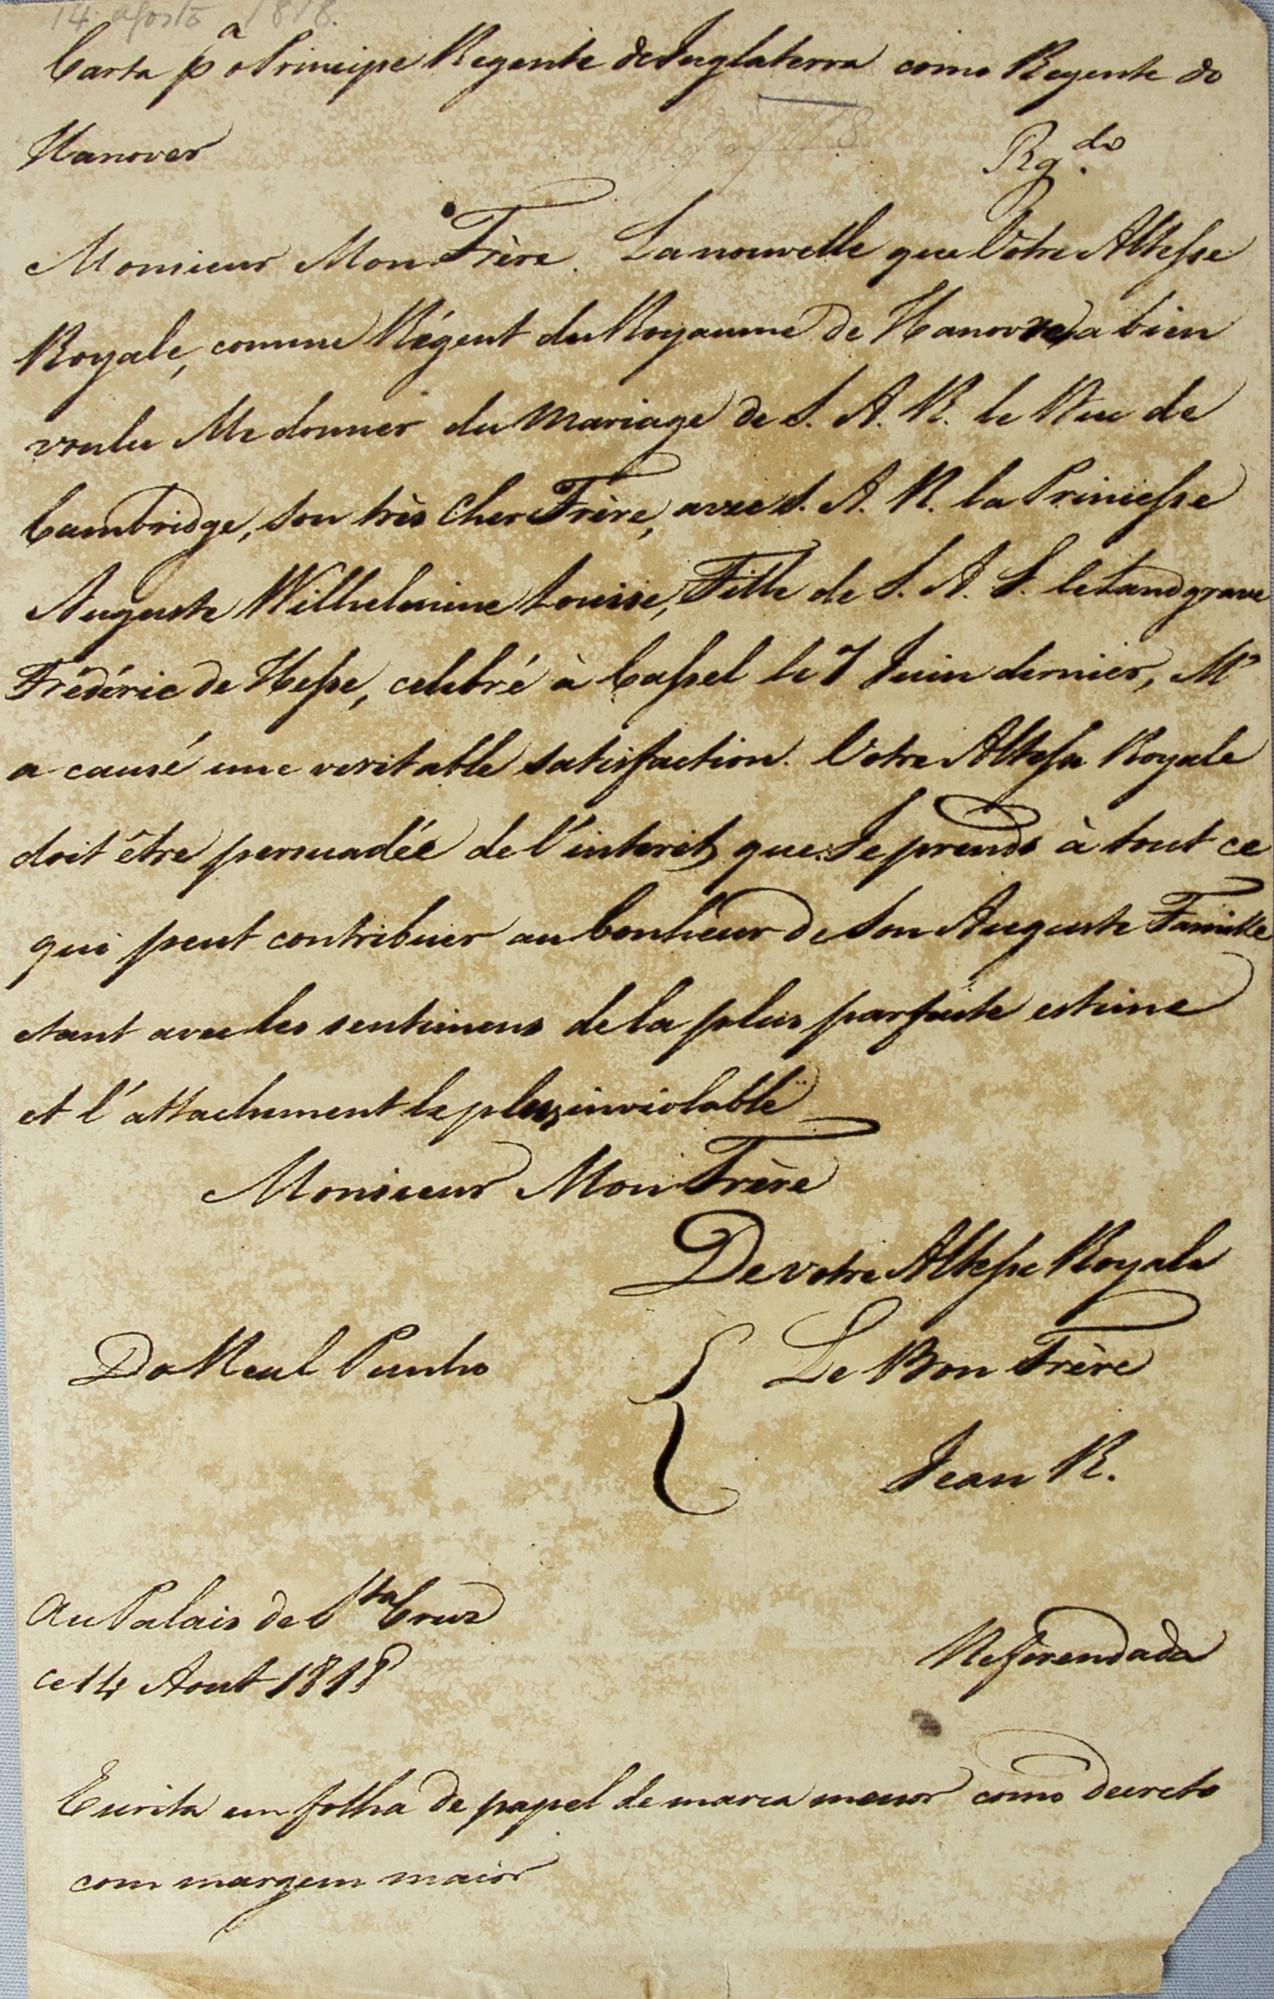 14 agosto 1818.
Carta pª o Principe Regente de Inglaterra como Regente do
Hanover
Rg.do
Monsieur Mon Frère. La nouvelle que Votre Altesse
Royale, comme Régent du Royaume de Hanovre, a bien
voulu Me donner du mariage de S. A. R. le Duc de
Cambridge, son très Cher Frère, avec S. A. R. la Princesse
Auguste Wilhelmine Louise, Fille de S. A. S. le Landgrave
Frédéric de Hesse, celebré à Cassel le 7 Juin dernier, M'
a causé une veritable satisfaction. Votre Altesse Royale
doit être persuadée de l'interêt que Je prends à tout ce
qui peut contribuer au bonheur de Son Auguste Famille
etant avec les sentimens de la plus parfaite estime
et l'attachement le plus inviolable
Monsieur Mon Frère
De votre Altesse Royale
Do Real Punho { Le Bon Frère
Jean R.
Au Palais de Sta Cruz
ce 14 Aout 1818
Referendada
Escrita em folha de papel de marca menor como decreto
com margem maior